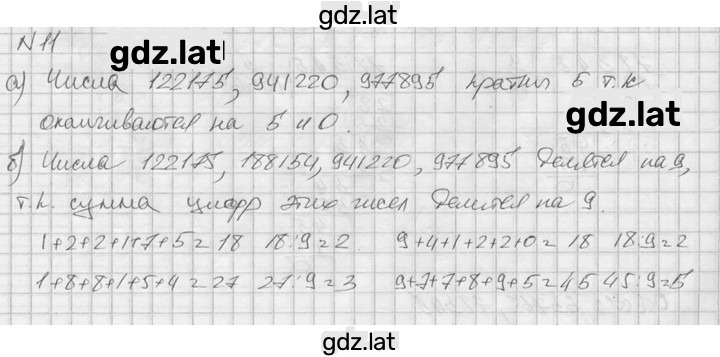 gdz.lat
N 11
gdz.lat
а) Числа 122175, 941220, 977895 кратны 5 т.к
оканчиваются на 5 и 0.
gdz.lat
б) Числа 122175, 188154, 941220, 977895 делятся на 9,
т.к. сумма цифр этих чисел делится на 9.
1+2+2+1+7+5=18 18:9=2 9+4+1+2+2+0=18 18:9=2
1+8+8+1+5+4=27 27:9=3 9+7+7+8+9+5=45 45:9=5
gdz.lat